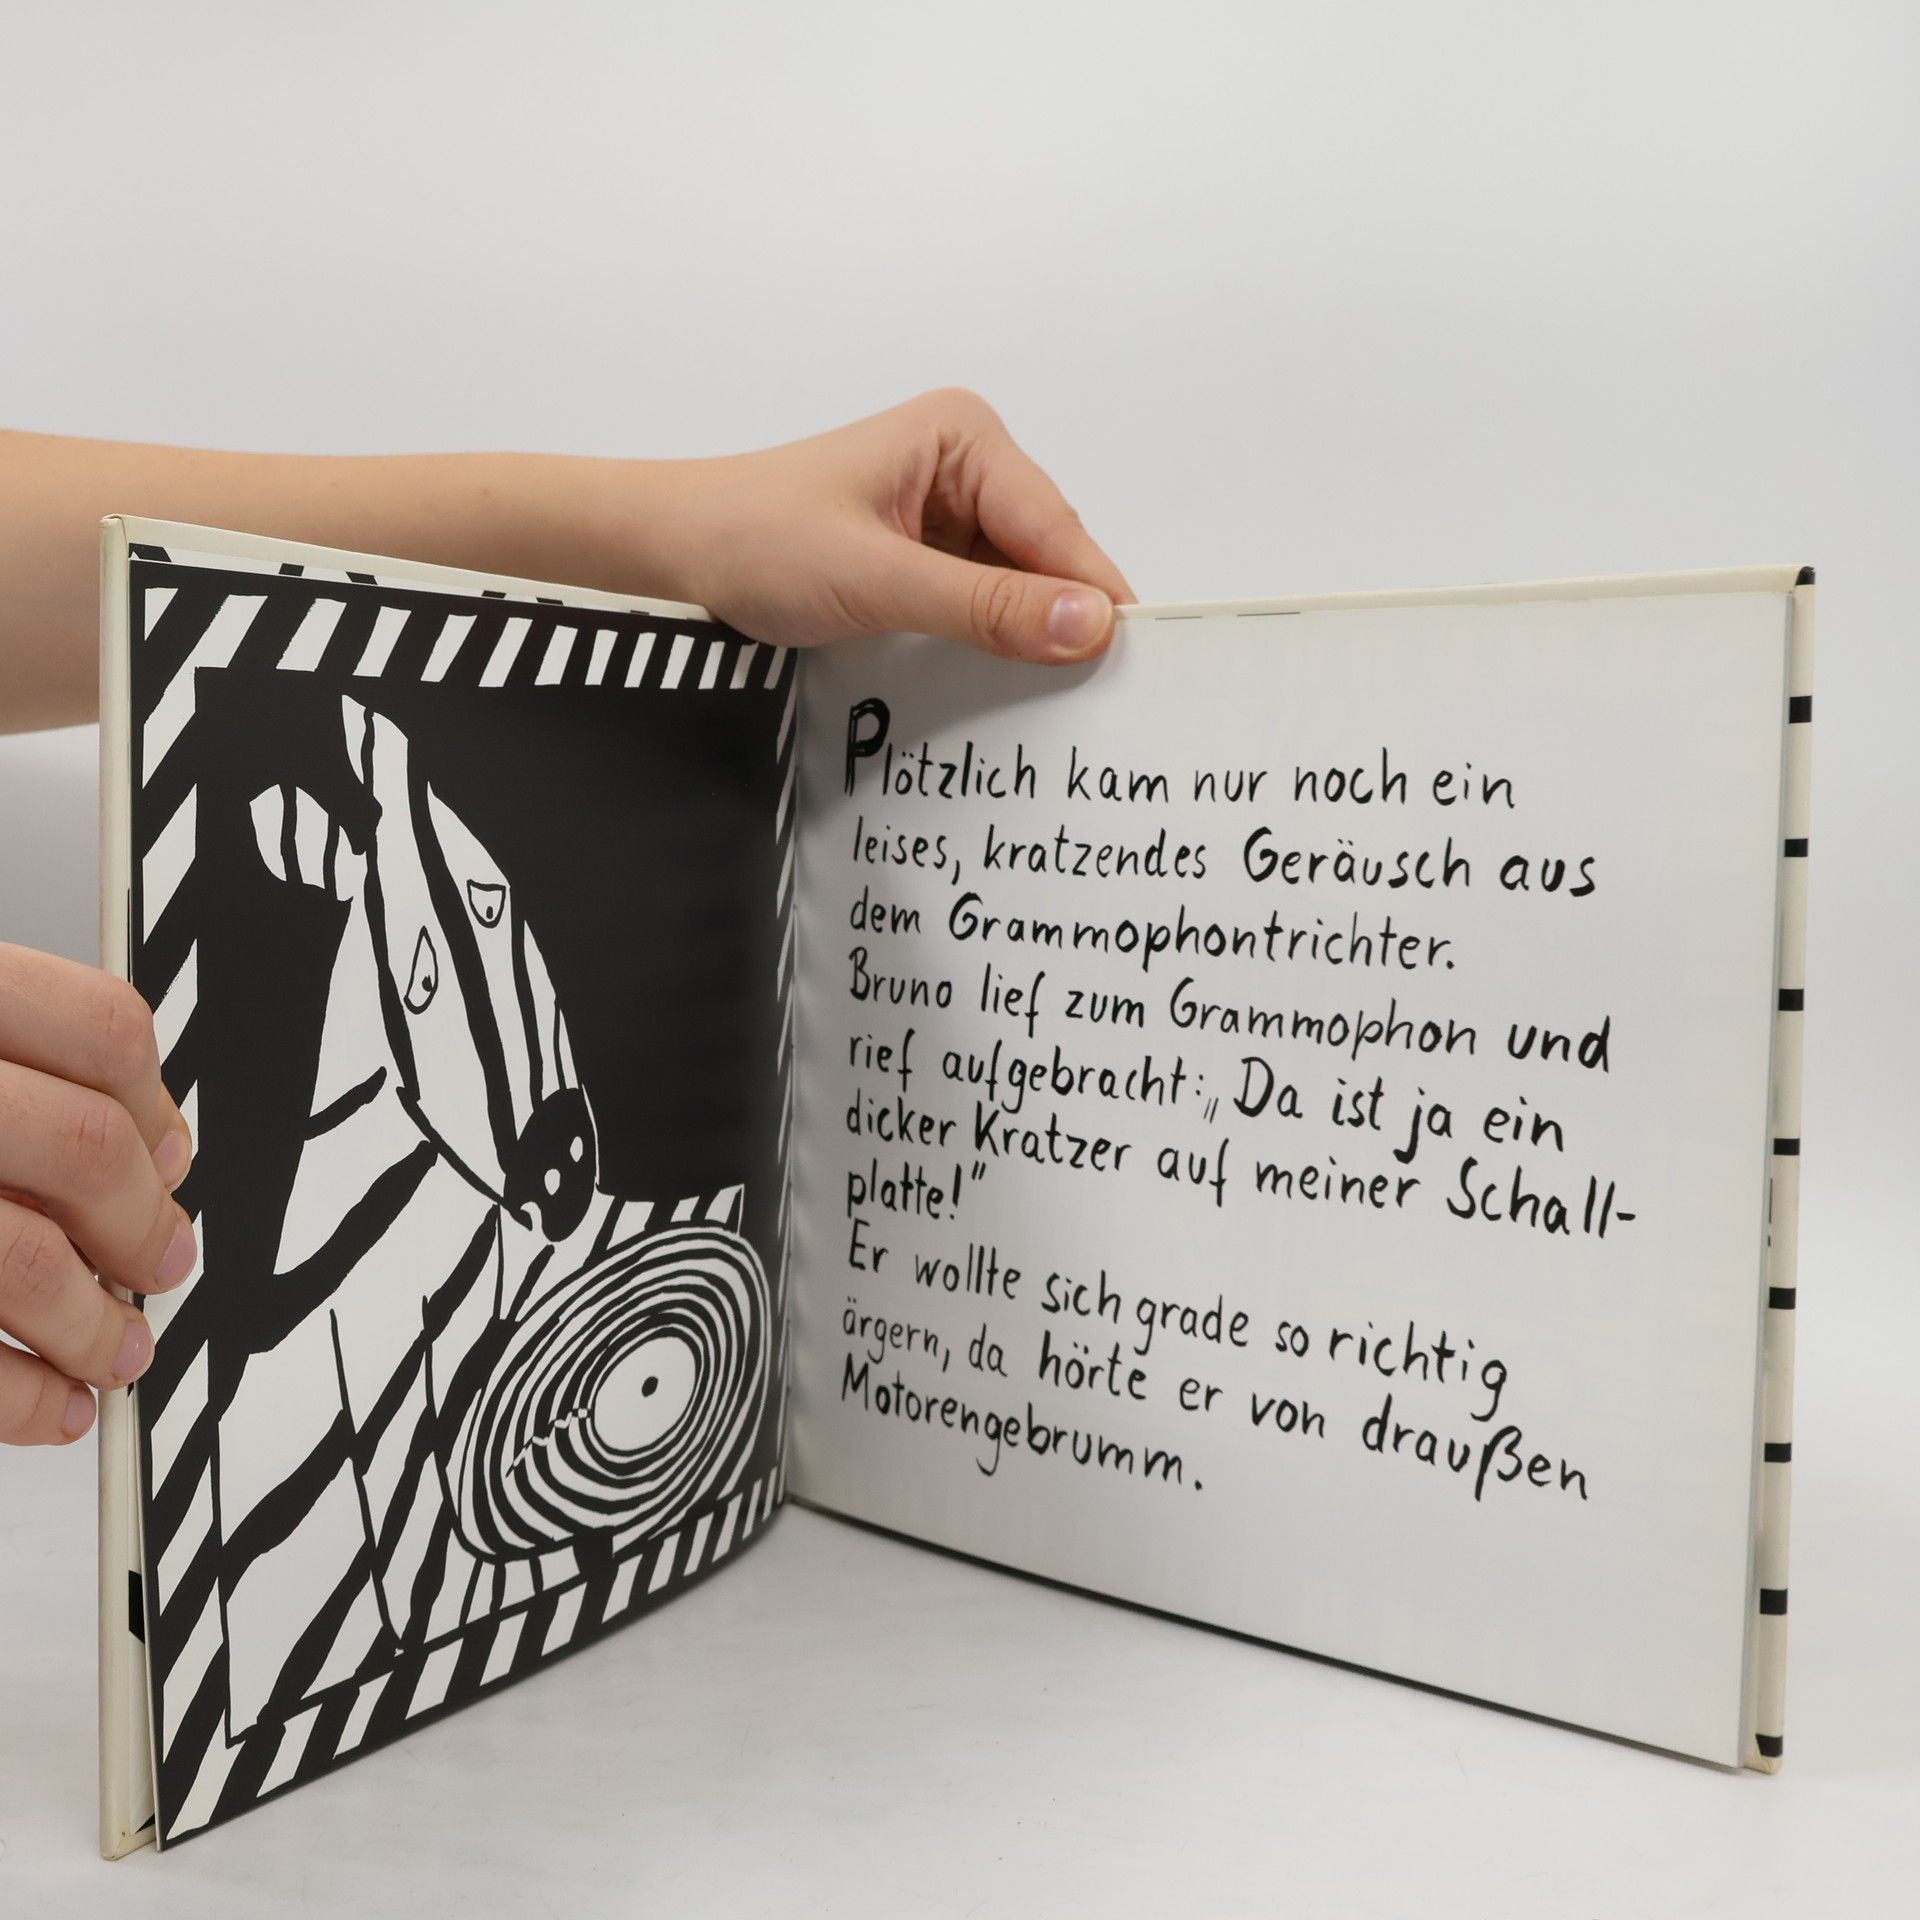 Plötzlich kam nur noch ein
leises, kratzendes Geräusch aus
dem Grammophontrichter.
Bruno lief zum Grammophon und
rief aufgebracht: „Da ist ja ein
dicker Kratzer auf meiner Schall-
platte!"
Er wollte sich grade so richtig
ärgern, da hörte er von draußen
Motorengebrumm.